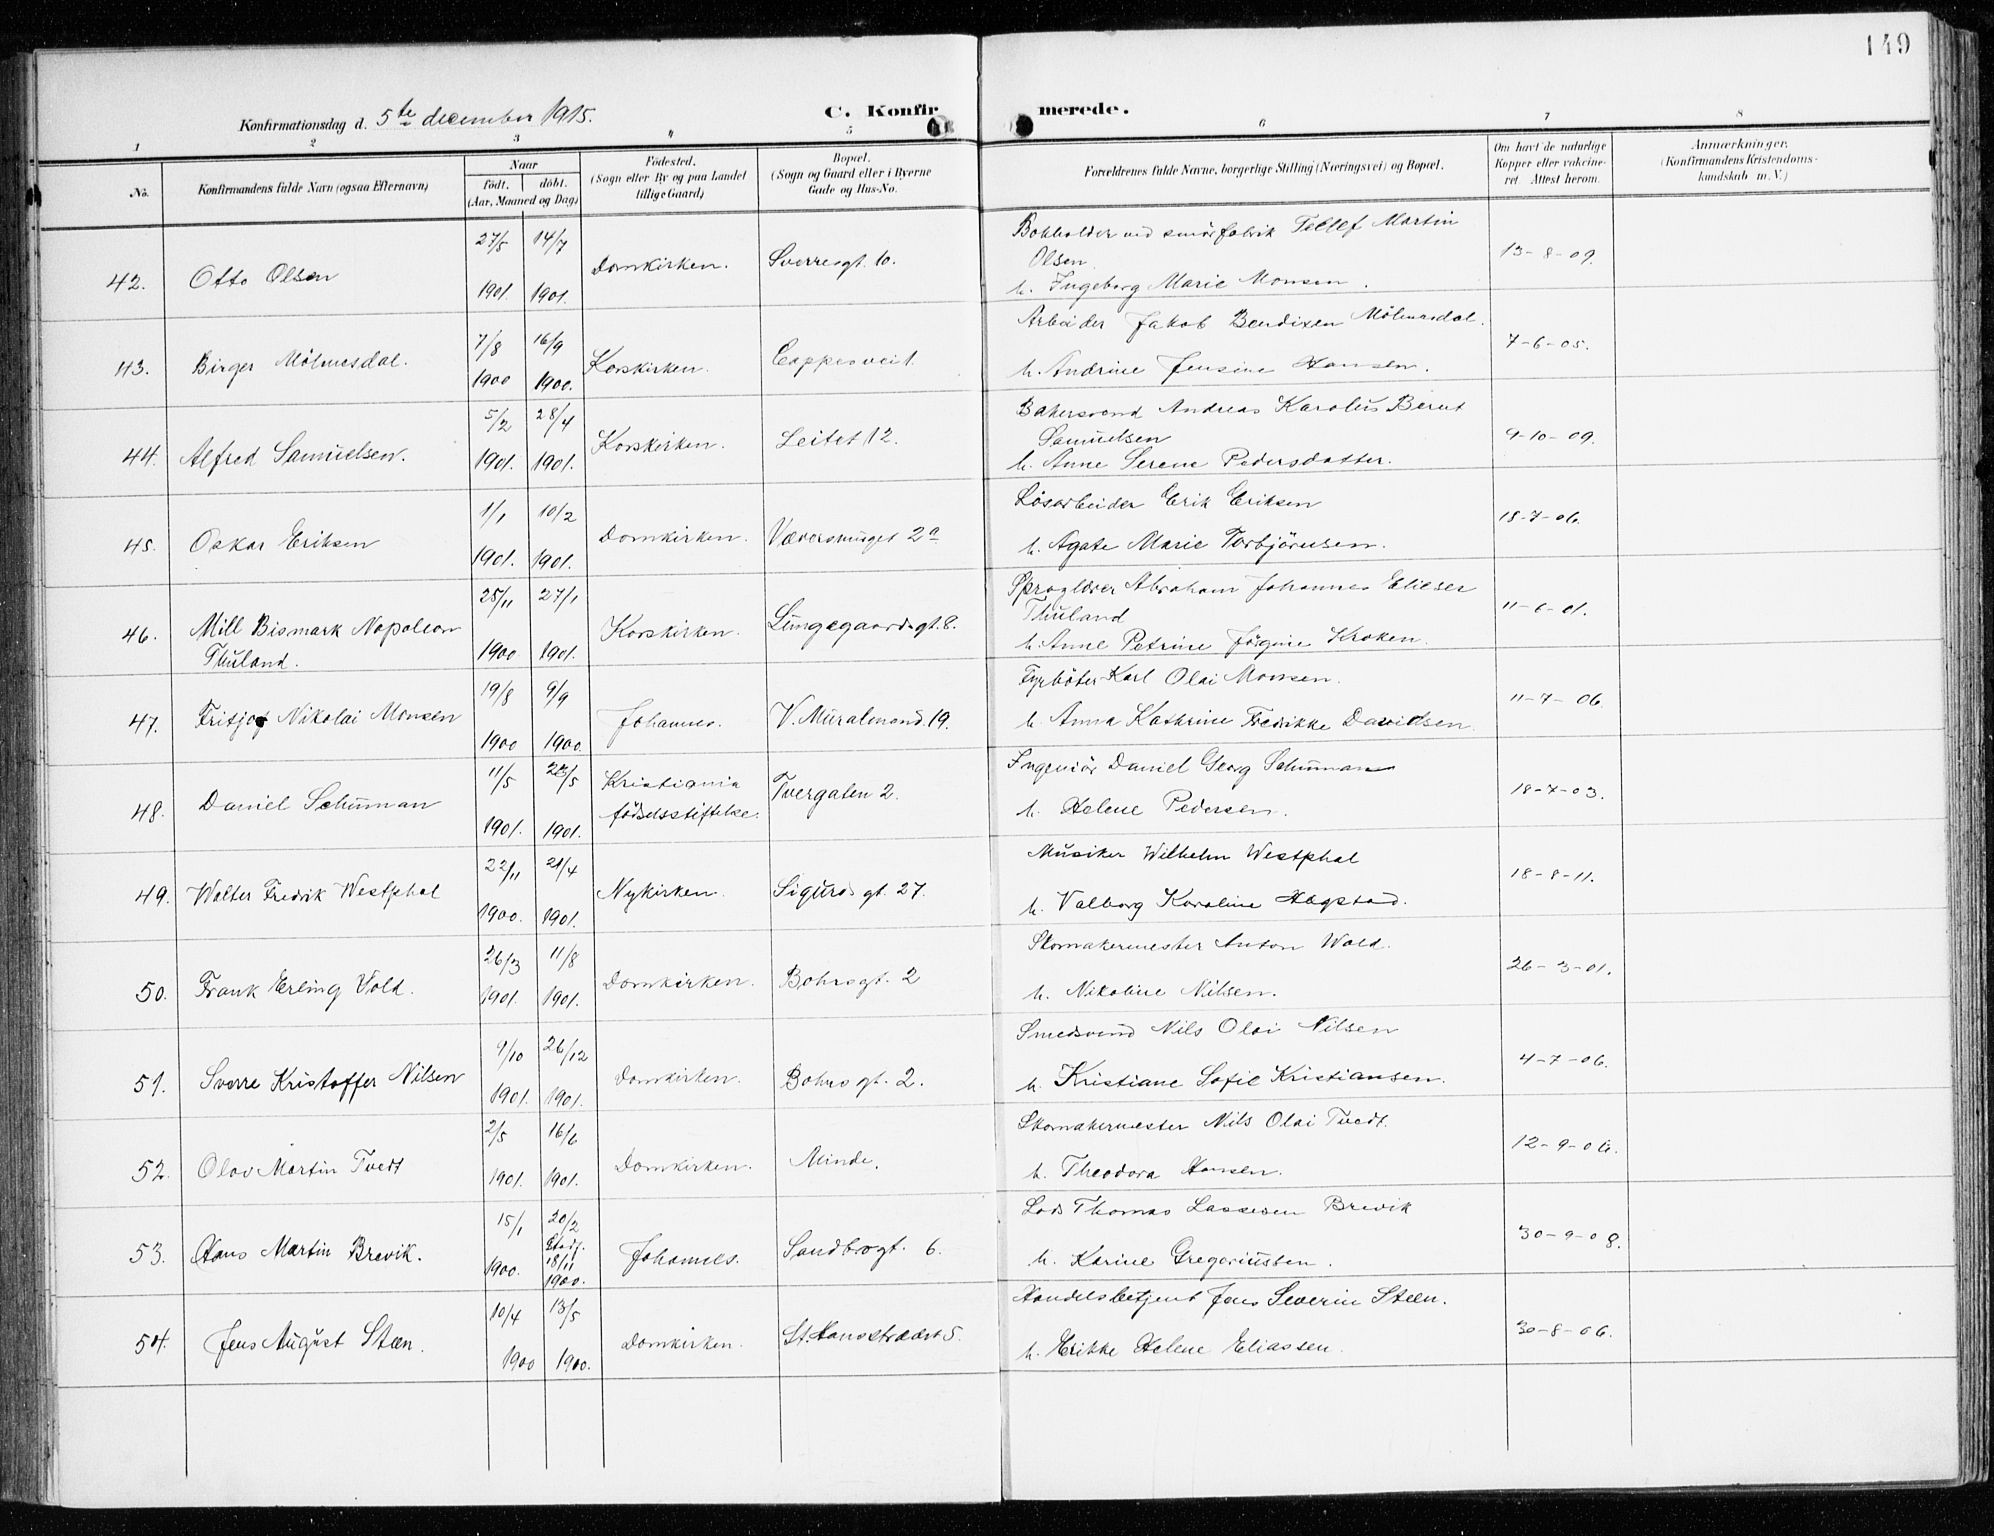 149
Konfirmationsdag d. 5te december 1915. C. Konfirmerede.
1 2 3 4 5 6 7 8
No. Konfirmandens fulde Navn (ogsaa Efternavn) Naar født. døbt. (Aar, Maaned og Dag) Fødested. (Sogn eller By og paa Landet tillige Gaard) Bopæl. (Sogn og Gaard eller i Byerne Gade og Hus-No. Forældrenes fulde Navne, borgerlige Stilling (Næringsvei) og Bopæl. Om havt de naturlige Kopper eller vakcineret. Attest herom. Anmærkninger. (Konfirmandens Kristendomskundskab m. V.)
42. Otto Olsen 27/5 1901. 14/7 1901. Domkirken. Sverresgt. 10. Bokholder ved smørfabrik Tellef Martin
Olsen
h. Ingeborg Marie Monsen. 13-8-09.
43. Birger Mölmesdal. 7/8 1900 16/9 1900. Korskirken. Cappesveit. Arbeider Jakob Bendixen Mölmesdal.
h. Andrine Jensine Hansen. 7-6-05.
44. Alfred Samuelsen. 5/2 1901. 28/4 1901. Korskirken. Leitet 12. Bakersvend Andreas Karolus Bernt
Samuelsen
h. Anne Serene Pedersdatter. 9-10-09.
45. Oskar Eriksen 1/1 1901. 10/2 1901. Domkirken. Væversmuget 2a Løsarbeider Erik Eriksen
h. Agate Marie Torbjörnsen. 18-7-06.
46. Mill Bismark Napoleon
Thuland. 25/11 1900 27/1 1901. Korskirken. Lungegaardsgt. 8. Sproglærer Abraham Johannes Elieser
Thuland
h. Anne Petrine Jörgine Kroken. 11-6-01.
47. Fritjof Nikolai Monsen 19/8 1900 9/9 1900. Johannes. V. Muralmend. 19. Fyrböter Karl Olai Monsen.
h. Anna Kathrine Fredrikke Davidsen. 11-7-06.
48. Daniel Schuman 11/5 1901. 23/5 1901. Kristiania
fødselsstiftelse. Tvergaten 2. Ingeniör Daniel Georg Schuman
h. Helene Pedersen. 18-7-03.
49. Walter Fredrik Westphal 22/11 1900. 21/4 1901. Nykirken. Sigurdsgt. 27. Musiker Wilhelm Westphal
h. Valborg Karoline Hegstad. 18-8-11.
50. Frank Erling Vold. 26/3 1901. 11/8 1901. Domkirken. Bohrsgt. 2 Skomakermester Anton Wold.
h. Nikoline Nilsen. 26-3-01.
51. Sverre Kristoffer Nilsen 9/10 1901. 26/12 1901. Domkirken. Bohrsgt. 2. Smedsvend Nils Olai Nilsen
h. Kristiane Sofie Kristiansen. 4-7-06.
52. Olav Martin Tvedt 2/5 1901. 16/6 1901. Domkirken. Minde. Skomakermester Nils Olai Tvedt.
h. Theodora Hansen. 12-9-06.
53. Hans Martin Brevik. 15/1 1900. 20/2
Stadf.
18/11
1900. Johannes. Sandbrogt. 6. Lods Thomas Lassesen Brevik
h. Karine Gregoriussen. 30-9-08.
54. Jens August Steen. 10/4 1900 13/5 1900. Domkirken. St. Hansstrædet 5. Handelsbetjent Jens Severin Steen.
h. Erikke Helene Eliassen. 30-8-06.